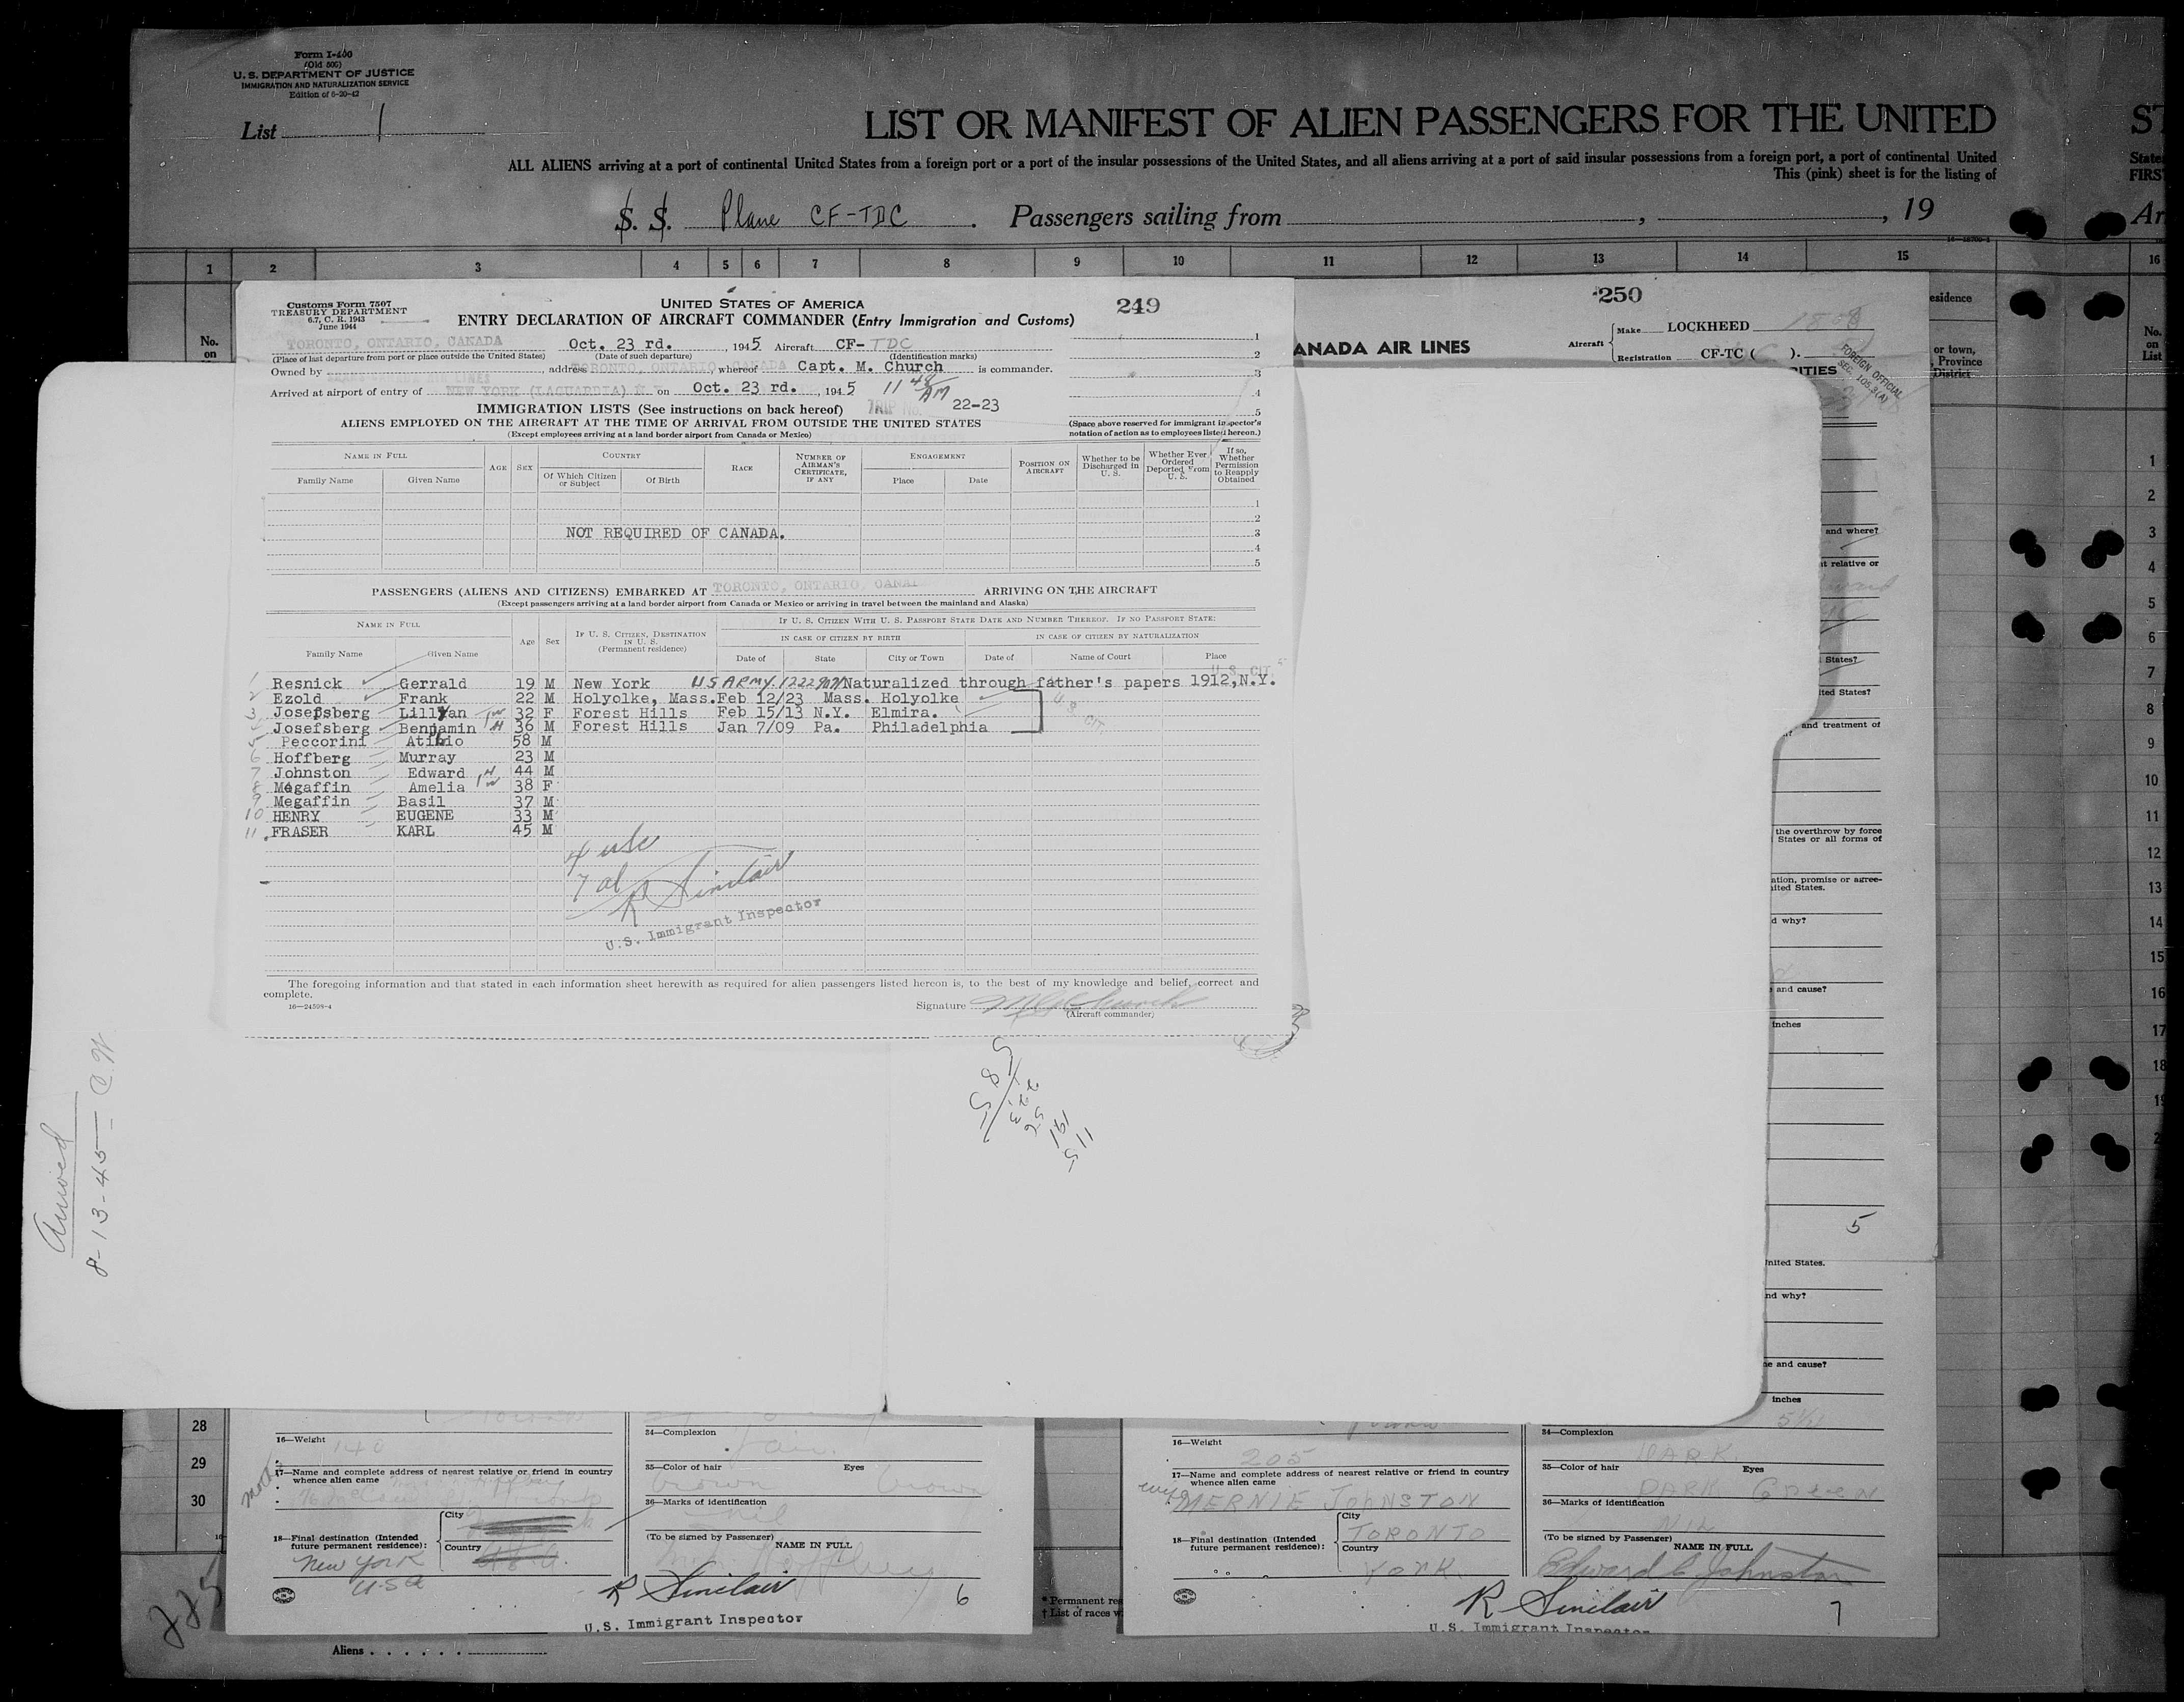 Form I-400
(Old 500)
U. S. DEPARTMENT OF JUSTICE
IMMIGRATION AND NATURALIZATION SERVICE
Edition of 6-20-42
List 1
LIST OR MANIFEST OF ALIEN PASSENGERS FOR THE UNITED ST
ALL ALIENS arriving at a port of continental United States from a foreign port or a port of the insular possessions of the United States, and all aliens arriving at a port of said insular possessions from a foreign port, a port of continental United
This (pink) sheet is for the listing of
State
FIRS
S. S. Plane CF-TDC . Passengers sailing from , , 19 Ar
1 2 3 4 5 6 7 8 9 10 11 12 13 14 15 16
No. on
Customs Form 7507
TREASURY DEPARTMENT
6.7, C. R. 1943
June 1944
UNITED STATES OF AMERICA
249
ENTRY DECLARATION OF AIRCRAFT COMMANDER (Entry Immigration and Customs)
TORONTO, ONTARIO, CANADA Oct. 23 rd. , 1945 Aircraft CF-TDC
(Place of last departure from port or place outside the United States) (Date of such departure) (Identification marks)
Owned by , address TORONTO, ONTARIO, CANADA whereof Capt. M. Church is commander.
Arrived at airport of entry of NEW YORK (LAGUARDIA) on Oct. 23 rd. , 1945 11 48 AM
IMMIGRATION LISTS (See instructions on back hereof) TRIP NO. 22-23
ALIENS EMPLOYED ON THE AIRCRAFT AT THE TIME OF ARRIVAL FROM OUTSIDE THE UNITED STATES
(Except employees arriving at a land border airport from Canada or Mexico)
1
2
3
4
5
(Space above reserved for immigrant inspector's
notation of action as to employees listed hereon.)
NAME IN FULL AGE SEX COUNTRY RACE NUMBER OF AIRMAN'S CERTIFICATE, IF ANY ENGAGEMENT POSITION ON AIRCRAFT Whether to be Discharged in U. S. Whether Ever Ordered Deported From U. S. If so, Whether Permission to Reapply Obtained
Family Name Given Name Of Which Citizen or Subject Of Birth Place Date
1
2
NOT REQUIRED OF CANADA. 3
4
5
PASSENGERS (ALIENS AND CITIZENS) EMBARKED AT TORONTO, ONTARIO, CANA ARRIVING ON THE AIRCRAFT
(Except passengers arriving at a land border airport from Canada or Mexico or arriving in travel between the mainland and Alaska)
NAME IN FULL Age Sex IF U. S. CITIZEN, DESTINATION IN U. S. (Permanent residence) IF U. S. CITIZEN WITH U. S. PASSPORT STATE DATE AND NUMBER THEREOF. IF NO PASSPORT STATE:
IN CASE OF CITIZEN BY BIRTH IN CASE OF CITIZEN BY NATURALIZATION
Family Name Given Name Date of State City or Town Date of Name of Court Place
U.S. CIT
1 Resnick Gerrald 19 M New York US ARMY. Naturalized through father's papers 1912,N.Y.
2 Ezold Frank 22 M Holyolke, Mass. Feb 12/23 Mass. Holyolke
3 Josefsberg Lillyan 32 F Forest Hills Feb 15/13 N.Y. Elmira.
4 Josefsberg Benjamin 36 M Forest Hills Jan 7/09 Pa. Philadelphia
U.S. CIT.
5 Peccorini Atilio 58 M
6 Hoffberg Murray 23 M
7 Johnston Edward 44 M
8 Megaffin Amelia 38 F
9 Megaffin Basil 37 M
10 HENRY EUGENE 33 M
11 FRASER KARL 45 M
4 usc
7 al
R Sinclair
U.S. Immigrant Inspector
The foregoing information and that stated in each information sheet herewith as required for alien passengers listed hereon is, to the best of my knowledge and belief, correct and
complete.
16—24598-4
Signature M Church
(Aircraft commander)
250
ANADA AIR LINES
Aircraft Make LOCKHEED
Registration CF-TC ( ).
FOREIGN OFFICIAL
SEC. 105.3(A)
ITIES
esidence
or town,
Province
District
No. on List
and where?
t relative or
States?
ited States?
and treatment of
the overthrow by force
States or all forms of
ation, promise or agree-
ited States.
d why?
and cause?
inches
5
nited States.
nd why?
e and cause?
inches
5'11
1
2
3
4
5
6
7
8
9
10
11
12
13
14
15
16
17
18
Arrived
8-13-45 — C W
28
29
30
16—Weight 140
17—Name and complete address of nearest relative or friend in country
whence alien came
18—Final destination (Intended
future permanent residence):
City
Country
New York
USA
34—Complexion fair.
35—Color of hair brown Eyes brown
36—Marks of identification
nil
(To be signed by Passenger)
NAME IN FULL
R Sinclair
U.S. Immigrant Inspector
6
225
Aliens
* Permanent res
† List of races w
16—Weight 205
17—Name and complete address of nearest relative or friend in country
whence alien came
wife MERNIE JOHNSTON
18—Final destination (Intended
future permanent residence):
City TORONTO
Country YORK
34—Complexion DARK
35—Color of hair DARK Eyes Green
36—Marks of identification
NIL
(To be signed by Passenger)
NAME IN FULL
Edward C Johnston
R Sinclair
U.S. Immigrant Inspector
7